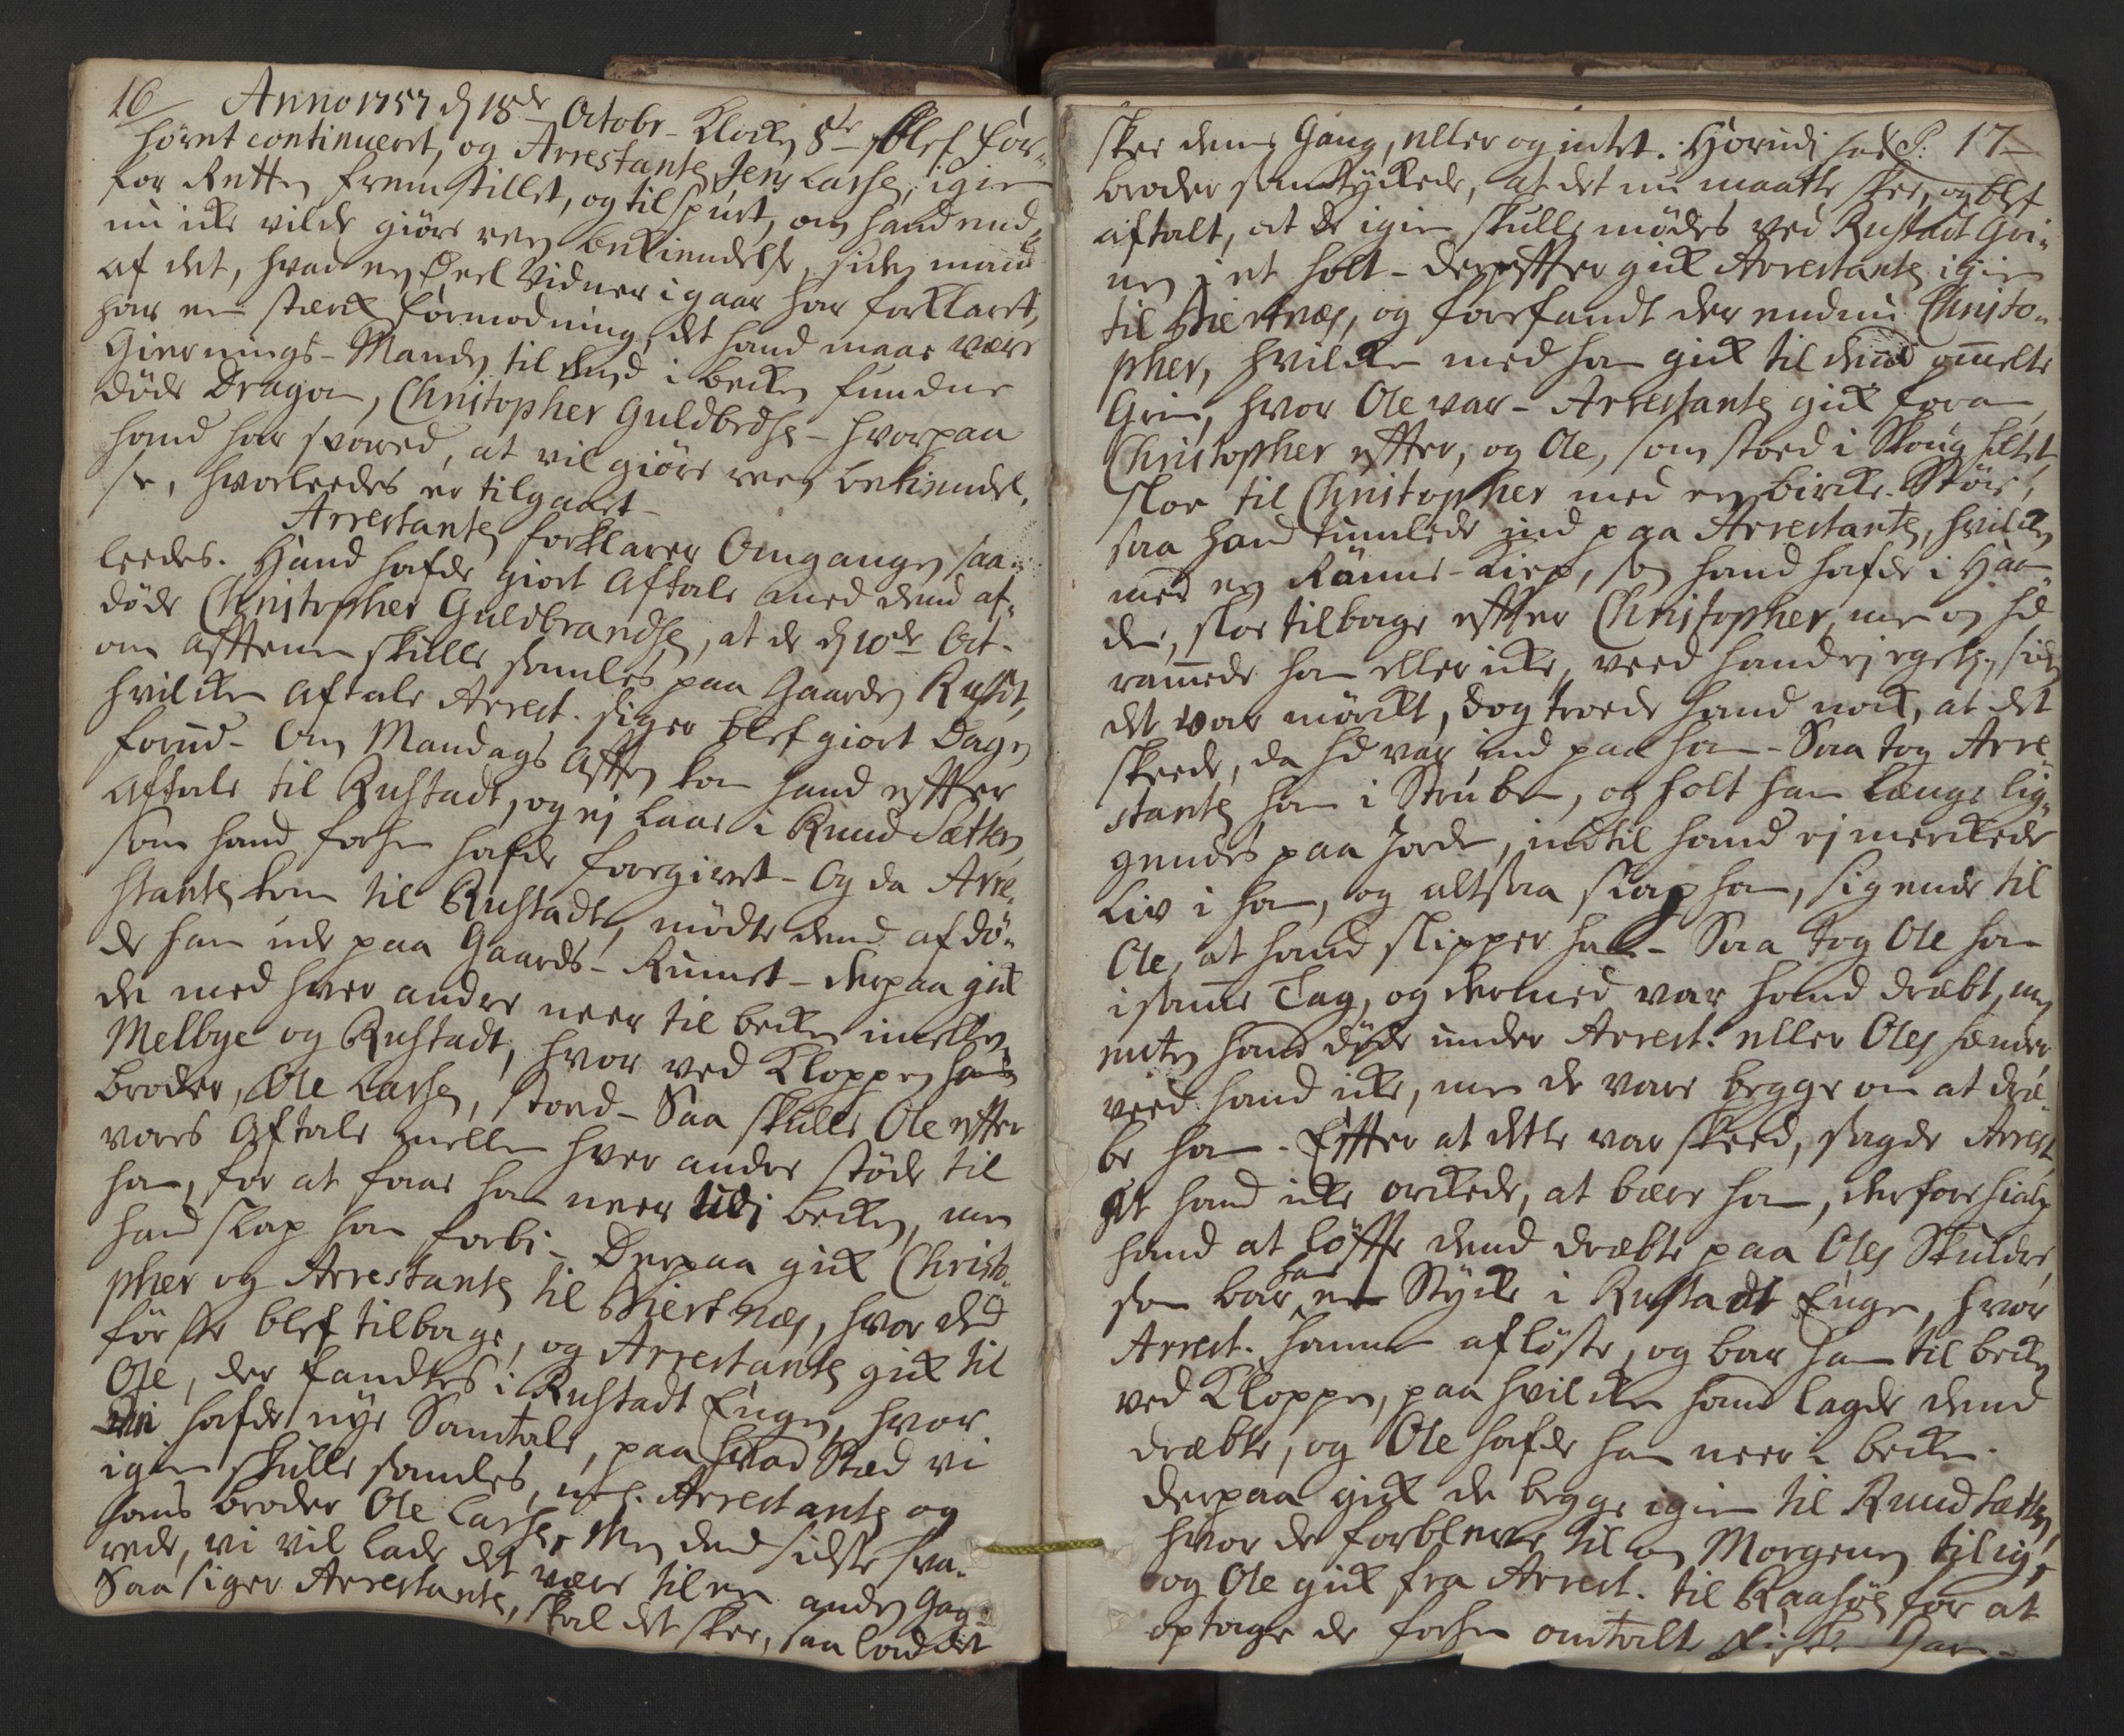 16/ Anno 1757 d 18de Octobr. Klocken 8te blef for-
høret continueret, og Arrestanten Jens Larsen, igien
for Retten fremstillet, og tilspurt, om hand end-
nu icke vilde giøre reen Bekiendelse, siden mand
af det, hvad en Deel Vidner i gaar har forklaret,
har en stærk Formodning, det hand maae være
Giernings-Manden til dend i becken fundne
døde Dragon, Christopher Guldbrdsen - hvorpaa
hand har svared, at vil giøre reen bekiendel-
se, hvorleedes er tilgaaet -
Arrestanten forklarer Omgangen saa-
leedes. Hand hafde giort Aftale med dend af-
døde Christopher Guldbrandsen, at de d 10de Oct.
om Afftenen skulle samles paa Gaarden Rustdt,
hvilcken Aftale Arrest. siger blef giort Dagen
forud - Om Mandags Afften kom hand effter
Aftale til Rustadt, og ej laae i Ruud Sætteren,
som hand forhen hafde foregivet - Og da Arre-
stanten kom til Rustadt, mødte dend afdø-
de ham ude paa Gaards-Rummet - derpaa gik
de med hver andre neer til becken imellem
Melbye og Rustadt, hvor ved Kloppen hans
broder, Ole Larsen, stoed - Saa skulle Ole effter
vores Aftale mellem hver andre støde til
ham, for at faae ham neer udi becken, men
hand slap ham forbi - Derpaa gik Christo-
pher og Arrestanten til Biertnæs, hvor dend
første blef tilbage, og Arrestanten gik til
Ole, der fandtes i Rustadt Engen, hvor
vi hafde nye Samtale, paa hvad Stæd vi
igien skulle samles, nl. Arrestanten og
hans broder Ole Larsen. Men dend sidste sva-
rede, vi vil lade det være til en anden Gang.
Saa siger Arrestanten, skal det skee, saa lad det
P. 17
skee denne Gang, eller og intet. Hvorudi hans
broder samtyckede, at det nu maatte skee, og blef
aftalt, at de igien skulle mødes ved Rustadt Gri-
nen i et holt - Dereffter gik Arrestanten igien
til Biertnæs, og forefandt der endnu Christo-
pher, hvilcken med ham gik til dend ommelte
Grin, hvor Ole var - Arrestanten gik foran,
Christopher effter, og Ole, som stoed i Skoug holtet,
sloe til Christopher med en bircke Støer,
saa hand tumlede ind paa Arrestanten, hvilcken
med en Rønne-Kiep, som hand hafde i Haan-
den, sloe tilbage effter Christopher, men om hd
rammede ham eller icke, veed hand ej egentl., siden
det var mørckt, dog troede hand nock, at det
skeede, da hd var ind paa ham - Saa tog Arre-
stanten ham i Struben, og holt ham længe lig-
gendes paa Jorden, indtil hand ej merckede
Liv i ham, og altsaa slap ham, sigende til
Ole, at hand slipper ham - Saa tog Ole ham
i samme Tag, og dermed var hand dræbt, men
enten hand døde under Arrest. eller Oles hænder,
veed hand icke, men de vare begge om at dræ-
be ham. Effter at dette var skeed, sagde Arrest.
at hand icke orckede, at bære ham, derfore hialp
hand at løffte dend dræbte paa Oles Skuldre,
som bar ham et Stycke i Rustadt Engen, hvor
Arrest. hannem afløste, og bar ham til becken
ved Kloppen, paa hvilcken hand lagde dend
dræbte, og Ole hafde ham neer i becken.
Derpaa gik de begge igien til Ruud Sætteren,
hvor de forbleve til om Morgenen tilig,
og Ole gik fra Arrest. til Raasøen for at
optage de forhen omtalte Fiske Garn -